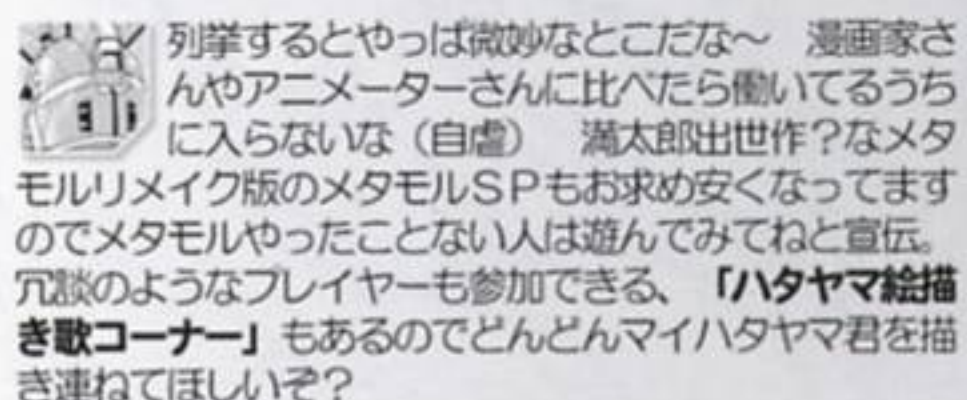 列挙するとやっぱ微妙なとこだな～　漫画家さ
んやアニメーターさんに比べたら働いてるうち
に入らないな（自虐）　満太郎出世作？なメタ
モルリメイク版のメタモルＳＰもお求め安くなってます
のでメタモルやったことない人は遊んでみてねと宣伝。
冗談のようなプレイヤーも参加できる、「ハタヤマ絵描
き歌コーナー」もあるのでどんどんマイハタヤマ君を描
き連ねてほしいぞ？